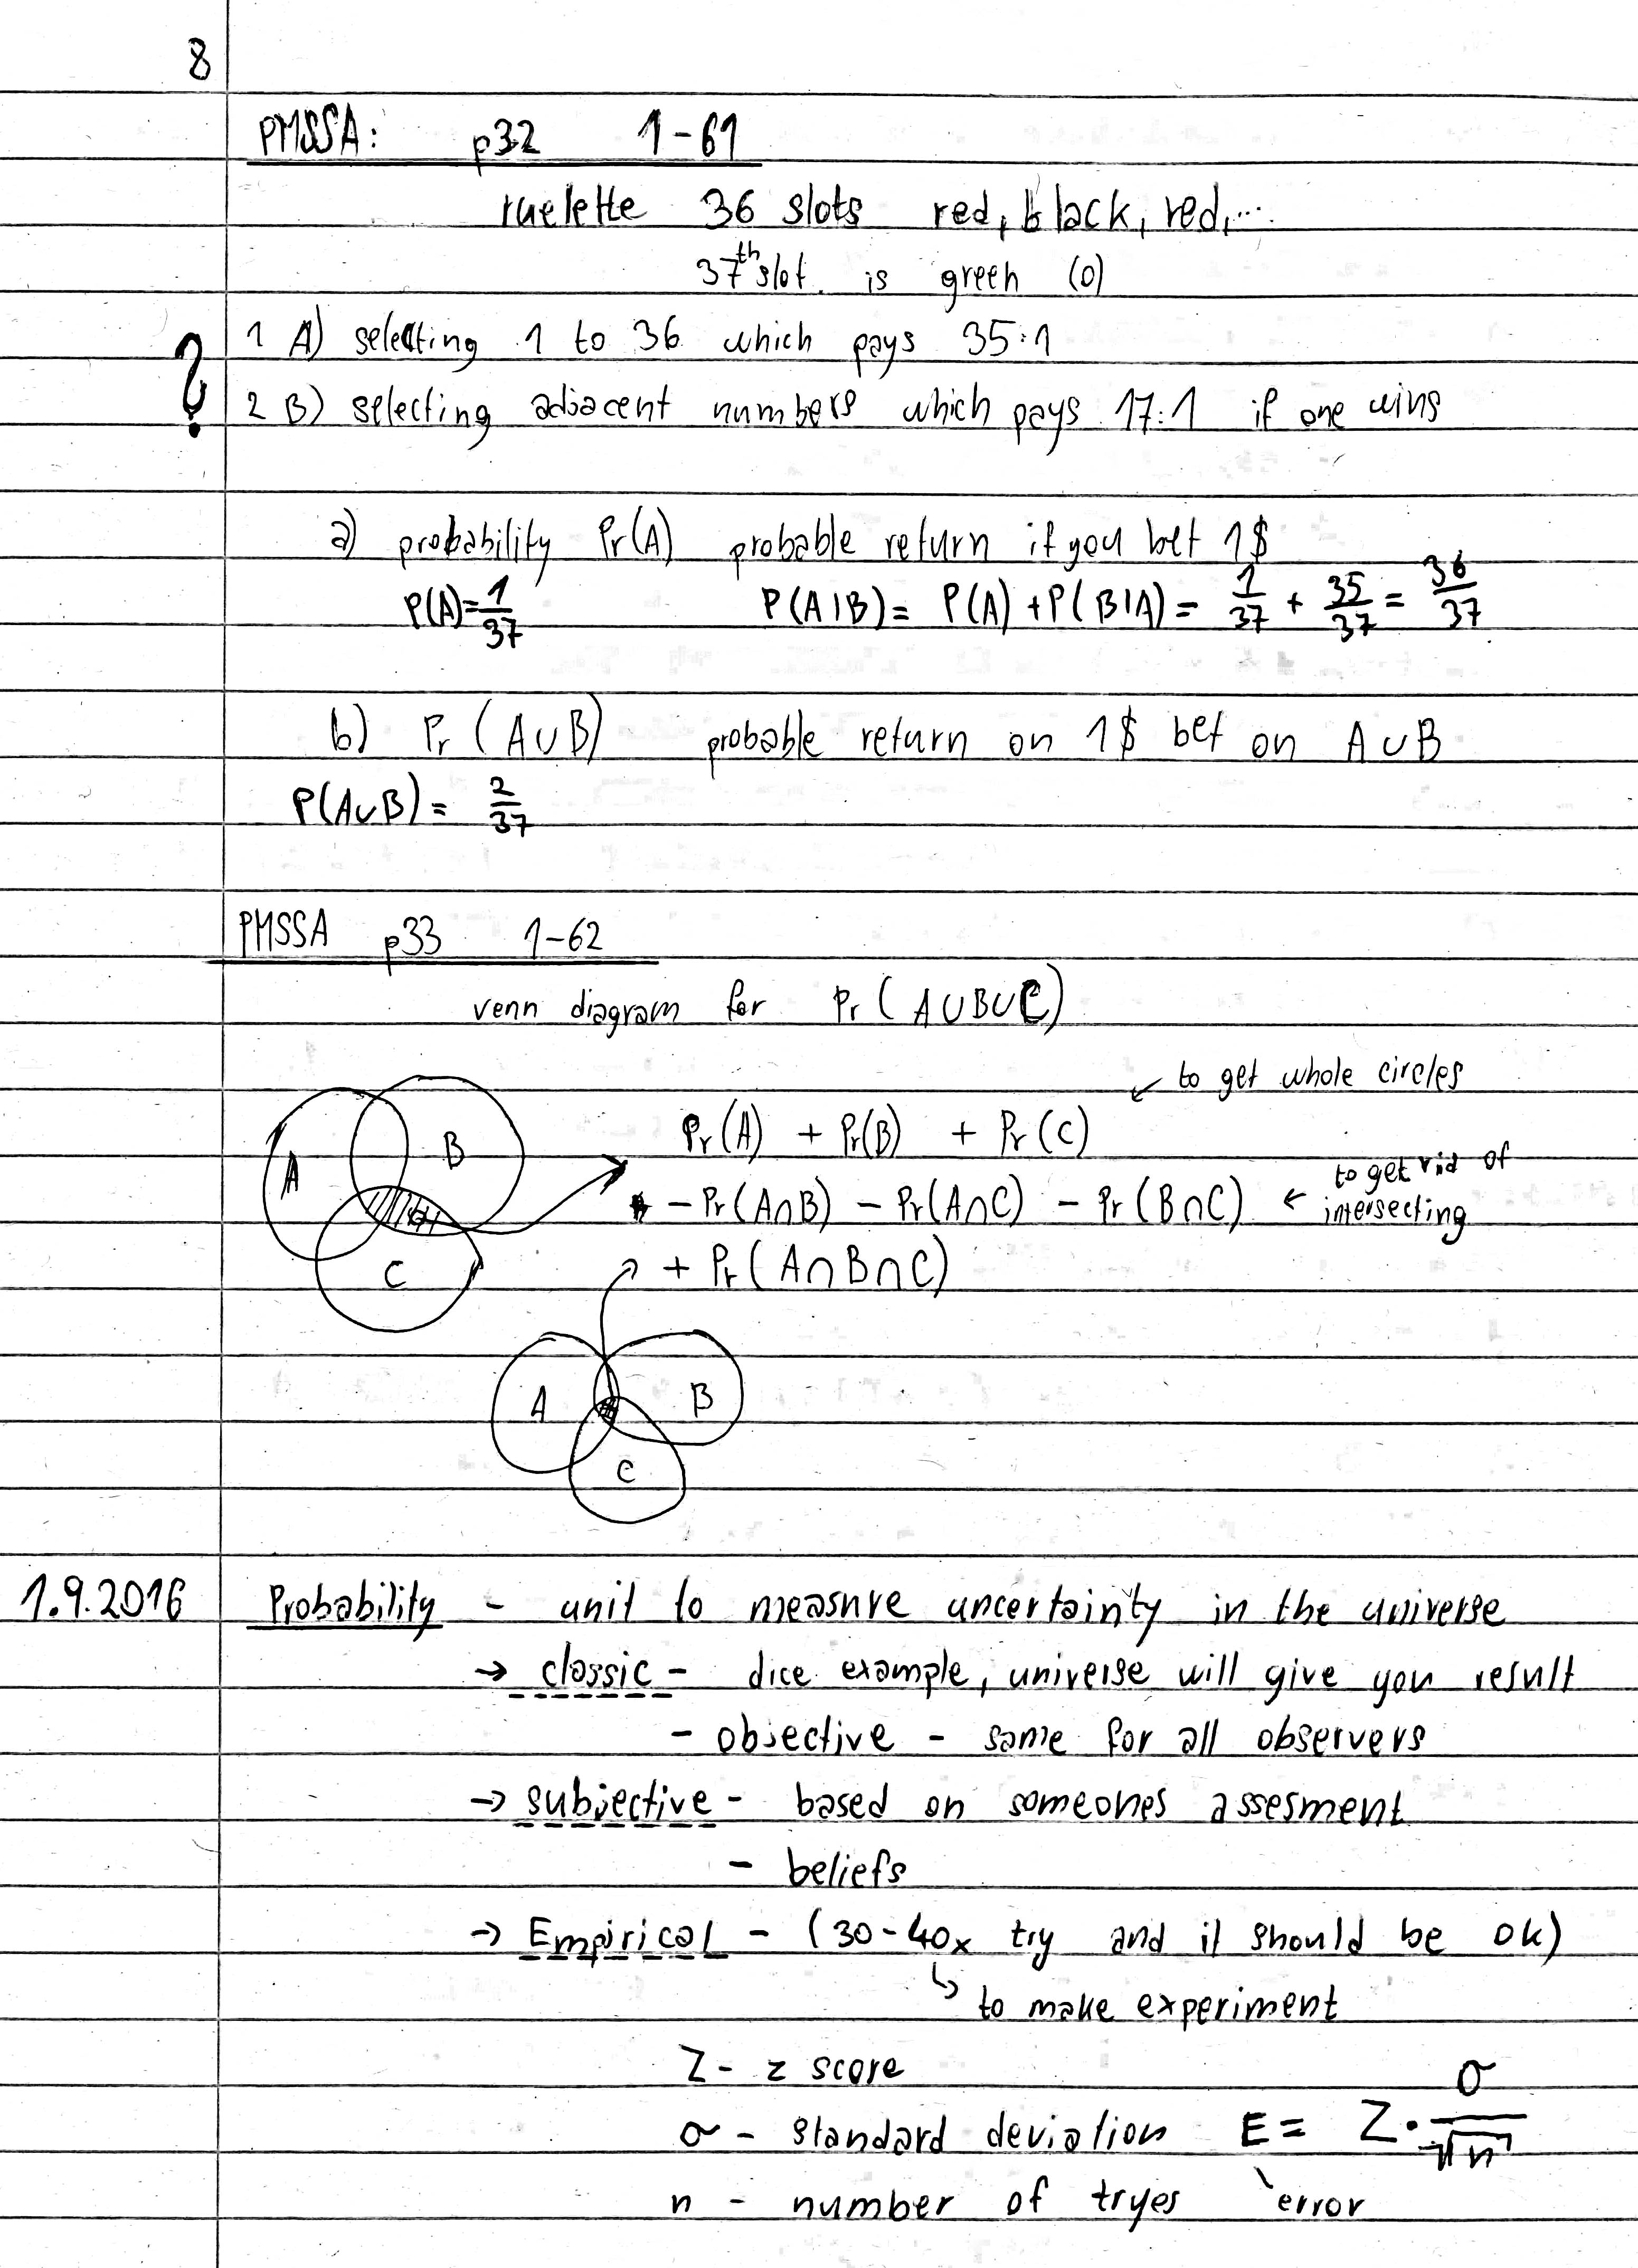 8
PMSSA: p32 1-61
ruelette 36 slots red, black, red,...
37th slot. is green (0)
? 1 A) selecting 1 to 36 which pays 35:1
2 B) selecting adjacent numbers which pays 17:1 if one wins
a) probability Pr(A) probable return if you bet 1$
P(A)=1/37 P(A|B)= P(A)+P(B|A)= 1/37 + 35/37 = 36/37
b) Pr (A∪B) probable return on 1$ bet on A∪B
P(A∪B)= 2/37
PMSSA p33 1-62
venn diagram for Pr (A∪B∪C)
↙ to get whole circles
A B Pr(A) + Pr(B) + Pr(C)
- Pr(A∩B) - Pr(A∩C) - Pr(B∩C) ← to get rid of
intersecting
C + Pr(A∩B∩C)
A B
C
1.9.2016 Probability - unit to measure uncertainty in the universe
→ classic - dice example, universe will give you result
- objective - same for all observers
→ subjective - based on someones assesment
- beliefs
→ Empirical - (30-40x try and it should be ok)
↳ to make experiment
Z - z score
σ - standard deviation E = Z · σ/√n
n - number of tryes error